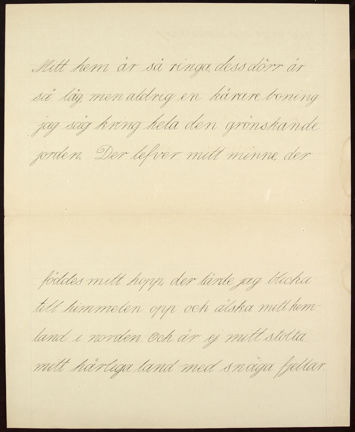 Mitt hem är så ringa, dess dörr är
så låg, men aldrig en kärare boning
jag såg kring hela den grönskande
jorden. Der lefver mitt minne, der
föddes mitt hopp, der lärde jag blicka
till himmelen opp och älska mitt hem-
land i norden. Och är ej mitt stolta
mitt härliga land med snöga fjellar